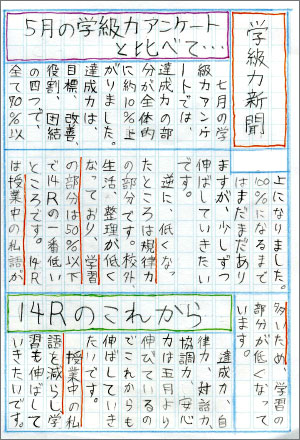 学級力新聞
5月の学級力アンケート
と比べて…
七月の学
級力アンケ
ートでは、
達成力の部
分が全体的
に約10%上
がりました。
達成力は、
目標、改善、
役割、団結
の四つで、
全て90%以
上になりました。
100%になるまで
はまだまだあり
ますが、少しずつ
伸ばしていきたい
です。
逆に、低くなっ
たところは規律力
の部分です。校外、
生活、整理が低く
なっており、学習
の部分は50%以下
で14Rの一番低い
ところです。14R
は授業中の私語が
多いため、学習の
部分が低くなって
います。
14Rのこれから
達成力、自
律力、対話力、
協調力、安心
力は五月より
伸びているの
でこれからも
伸ばしていき
たいです。
授業中の私
語を減らし学
習も伸ばして
いきたいです。